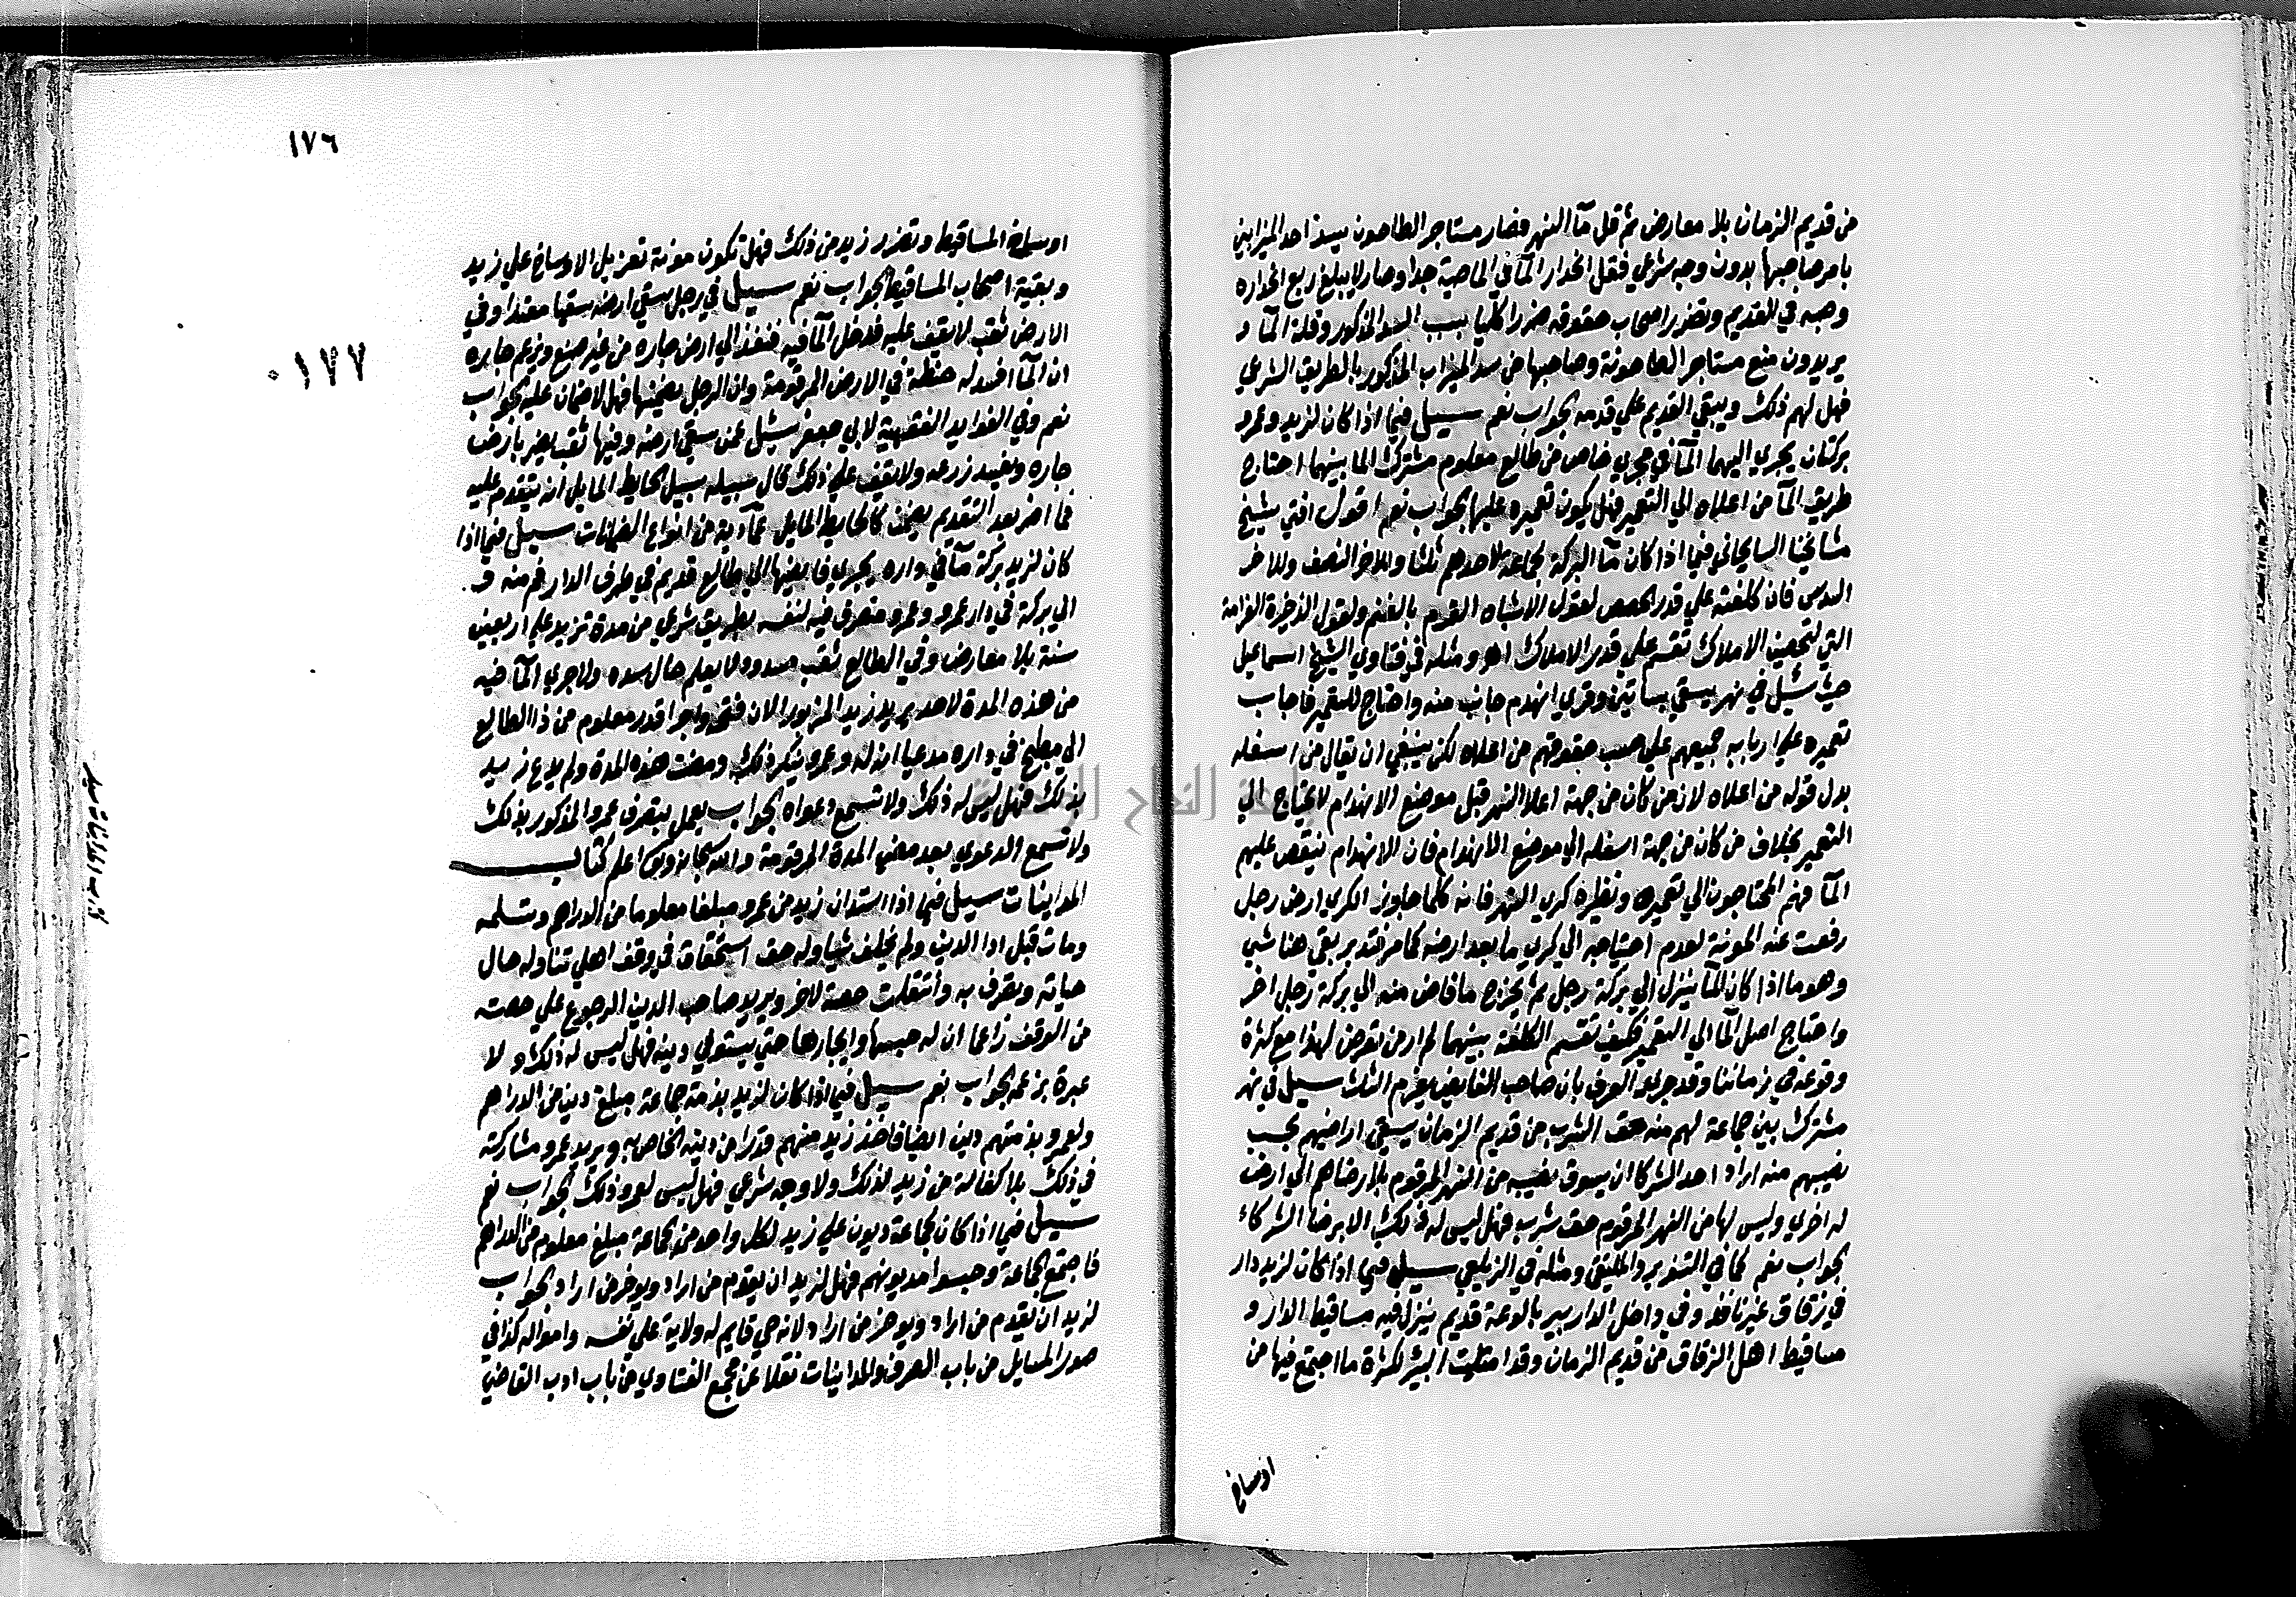 من قديم الزمان بلا معارض ثم قل مآ النهر فصار مستاجر الطاحون يسد احد الميزابين
بامر صاحبها بدون وجه شرعي فقل انحدار المآ في الماصية جدا وصار لا يبلغ ربع انحداره
وصبه في القديم وتضرر اصحاب حقوقه ضررا كليا بسبب السد المذكور وقلة المآ و
يريدون منع مستاجر الطاحونة وصاحبها من سد الميزاب المذكور بالطريق الشرعي
فهل لهم ذلك ويبقي القديم علي قدمه الجواب نعم سيل فيما اذا كان لزيد وعمرو
بركتان يجري اليهما المآ في مجري خاص من طالع معلوم مشترك الما بينهما احتاج
طريق المآ من اعلاه الي التعمير فهل يكون تعميره عليهما الجواب نعم اقول افتي شيخ
مشايخنا السايحاني فيما اذا كان مآ البركة لجماعة لاحدهم ثلثا وللاخر النصف وللاخر
السدس فان كلفته علي قدر الحصص لقول الاشباه الغرم بالغنم ولقول الذخيرة الغرامة
التي لتحصين الاملاك تقسم علي قدر الاملاك اهـ ومثله في فتاوي الشيخ اسماعيل
حيث سئل في نهر يسقي بساتين وقري انهدم جانب منه واحتاج للتعمير فاجاب
تعميره علي اربابه جميعهم علي حسب حقوقهم من اعلاه لكن ينبغي ان يقال من اسفله
بدل قوله من اعلاه لان من كان من جهة اعلا النهر قبل موضع الانهدام لا يحتاج الي
التعمير بخلاف من كان من جهة اسفله الي موضع الانهدام فان الانهدام ينقص عليهم
المآ فهم المحتاجون الي تعميره ونظيره كري النهر فانه كلما جاوز الكري ارض رجل
رفعت عنه المونة لعدم احتياجه الي كري ما بعد ارضه كما مر فتدبر بقي هنا شي
وهو ما اذا كان المآ ينزل الي بركة رجل ثم يخرج ما فاض منه الي بركة رجل اخر
واحتاج اصل المآ الي التعمير فكيف تقسم الكلفة بينهما لم ار من تعرض لهذا مع كثرة
وقوعه في زماننا وقد جري العرف بان صاحب الفايض يغرم الثلث سيل في نهر
مشترك بين جماعة لهم منه حق الشرب من قديم الزمان يسقي اراضيهم بحسب
نصيبهم منه اراد احد الشركا ان يسوق نصيبه من النهر المرقوم بلا رضاهم الي ارض
له اخري وليس لها من النهر المرقوم حق شرب فهل ليس له ذلك الا برضا الشركاء
الجواب نعم كما في التنوير والملتقي ومثله في الزيلعي سيل فيما اذا كان لزيد دار
في زقاق غير نافذ وفي داخل الدار بير بالوعة قديم ينزل فيه مساقيط الدار و
مساقيط اهل الزقاق من قديم الزمان وقد امتلئت البئر لكثرة ما اجتمع فيها من
اوساخ
١٧٦
١٧٧
اوساخ المساقيط وتضرر زيد من ذلك فهل تكون مونة تعزيل الاوساخ علي زيد
وبقية اصحاب المساقيط الجواب نعم سيل في رجل سقي ارضه سقيا معتدا وفي
الارض ثقب لا يقف عليه فدخل المآ فيه فنفذ الي ارض جاره من غير صنع وزعم جاره
ان المآ افسد له حنطة في الارض المرقومة وان الرجل يضمنها فهل لا ضمان عليه الجواب
نعم وفي الفوايد الفقهية لابي جعفر سئل عمن سقي ارضه وفيها ثقب يضر بارض
جاره ويفسد زرعه ولا يقف علي ذلك قال سبيله سبيل الحايط المايل انه يتقدم عليه
فما اضر بعد التقدم يضمن كالحايط المايل عمادية من انواع الضمانات سيل فيما اذا
كان لزيد بركة مآ في داره يجري فايضها الي طالع قديم في طرف الدار ثم منه
الي بركة في دار عمرو وعمرو متصرف فيه لنفسه بطريق شرعي من مدة تزيد علي اربعين
سنة بلا معارض وفي الطالع ثقب مسدود لا يعلم حال سده ولا جري المآ فيه
من هذه المدة لاحد يريد زيد المزبور الان فتحه واجرا قدر معلوم من ذا الطالع
الي مطبخ في داره مدعيا انه له وعمرو ينكر ذلك ومضت هذه المدة ولم يدع زيد
بذلك فهل ليس له ذلك ولا تسمع دعواه الجواب يعمل بتصرف عمرو المذكور بذلك
ولا تسمع الدعوي بعد مضي المدة المرقومة والله سبحانه وتعالى اعلم كتاب
المداينات سيل فيما اذا استدان زيد من عمرو مبلغا معلوما من الدراهم وتسلمه
ومات قبل ادا الدين ولم يخلف شيا وله حق استحقاق في وقف اهلي تناوله حال
حياته وتصرف به وانتقلت حصته لاخر ويريد صاحب الدين الرجوع علي حصته
من الوقف زاعما ان له حبسها وايجارها حتي يستوفي دينه فهل ليس له ذلك ولا
عبرة بزعمه الجواب نعم سيل فيما اذا كان لزيد بذمة جماعة مبلغ دين من الدراهم
ولعمرو بذمتهم دين ايضا فاخذ زيد منهم قدرا من دينه الخاص به ويريد عمرو مشاركته
في ذلك بلا كفالة من زيد لذلك ولا وجه شرعي فهل ليس لعمرو ذلك الجواب نعم
سيل فيما اذا كان لجماعة ديون علي زيد لكل واحد من الجماعة مبلغ معلوم من الدراهم
فاجتمع الجماعة وحبسوا مديونهم فهل لزيد ان يقدم من اراد ويوخر من اراد الجواب
لزيد ان يقدم من اراد ويوخر من اراد لانه حي قايم له ولاية علي نفسه وامواله كذا في
صور المسايل من باب الصرف والمداينات نقلا عن مجمع الفتاوي من باب ادب القاضي